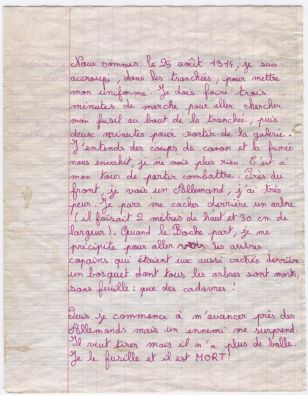 Nous sommes le 25 août 1914, je suis
accroupi, dans les tranchées, pour mettre
mon uniforme. Je dois faire trois
minutes de marche pour aller chercher
mon fusil au bout de la tranchée, puis
deux minutes pour sortir de la galerie.
J'entends des coups de canon et la fumée
nous envahit, je ne vois plus rien. C'est à
mon tour de partir combattre. Près du
front, je vois un Allemand, j'ai très
peur. Je pars me cacher derrière un arbre
(il faisait 2 mètres de haut et 30 cm de
largeur). Quand le Boche part, je me
précipite pour aller voir les autres
copains qui étaient eux aussi cachés derrière
un bosquet dont tous les arbres sont morts,
sans feuille : que des cadavres !
Puis je commence à m'avancer près des
Allemands mais un ennemi me surprend.
Il veut tirer mais il n'a plus de balle.
Je le fusille et il est MORT!